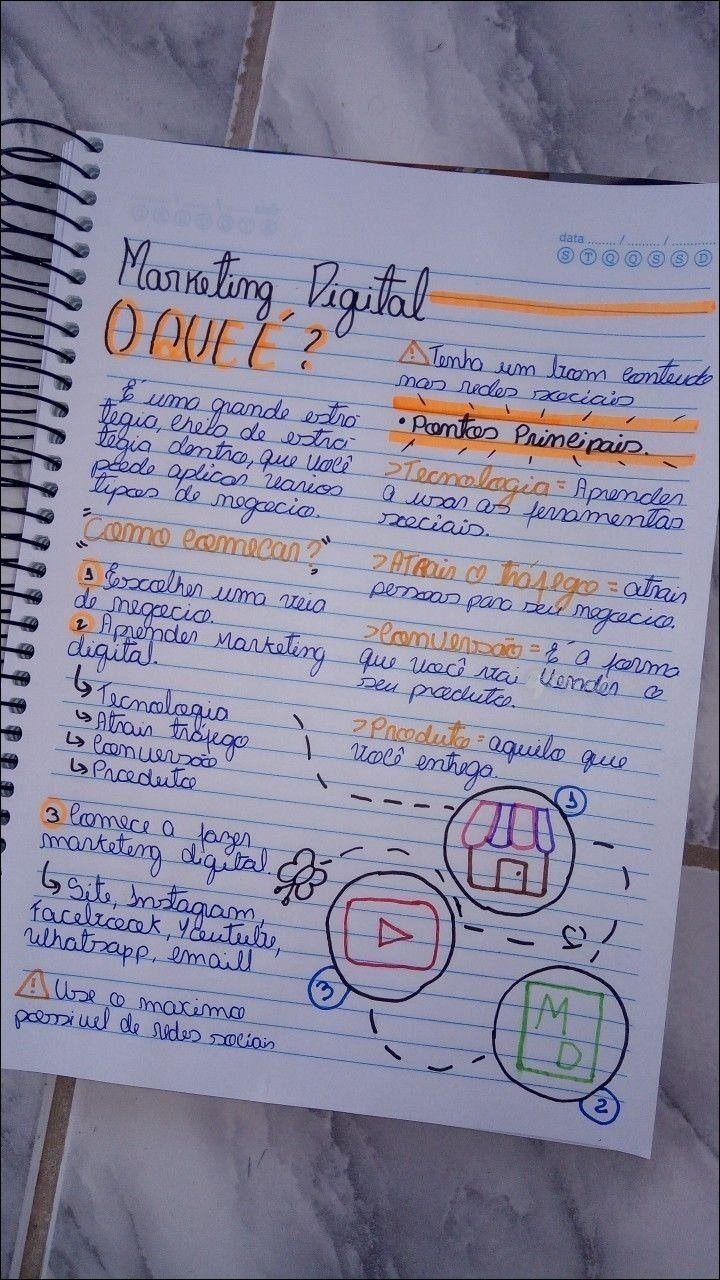 data ....... / ....... / .......
S T Q Q S S D
Marketing Digital
O QUE É?
É uma grande estra-
tegia, cheia de estra-
tegia dentro, que você
pode aplicar varios
tipos de negocio.
"Como começar?"
1 Escolher uma veia
de negocio.
2 Aprender Marketing
digital.
↳ Tecnologia
↳ Atrair tráfego
↳ Conversão
↳ Produto
3 Comece a fazer
marketing digital.
↳ Site, Instagram,
Facebook, Youtube,
Whatsapp, emaill
⚠ Use o maximo
possivel de redes sociais
⚠ Tenha um bom conteudo
nas redes sociais
• Pontos Principais.
>Tecnologia = Aprender
a usar as ferramentas
sociais.
>Atrair o tráfego = atrair
pessoas para seu negocio.
>Conversão = É a forma
que você vai vender o
seu produto.
>Produto = aquilo que
você entrega.
1
3
M
D
2